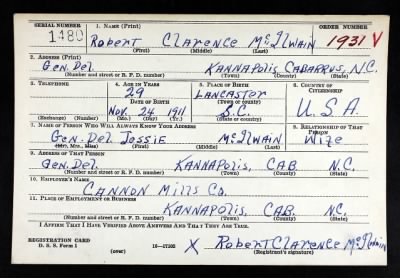 SERIAL NUMBER 1. NAME (Print) ORDER NUMBER
1480 Robert Clarence McIlwain 1931 V
(First) (Middle) (Last)
2. ADDRESS (Print)
Gen. Del. Kannapolis, Cabarrus, N.C.
(Number and street or R. F. D. number) (Town) (County) (State)
3. TELEPHONE 4. AGE IN YEARS 5. PLACE OF BIRTH 6. COUNTRY OF CITIZENSHIP
29 Lancaster
DATE OF BIRTH (Town or county)
Nov. 24 1911 S.C. U.S.A.
(Exchange) (Number) (Mo.) (Day) (Yr.) (State or country)
7. NAME OF PERSON WHO WILL ALWAYS KNOW YOUR ADDRESS 8. RELATIONSHIP OF THAT PERSON
Gen. Del. Jessie McIlwain Wife
(Mr., Mrs., Miss) (First) (Middle) (Last)
9. ADDRESS OF THAT PERSON
Gen. Del. Kannapolis, Cab. N.C.
(Number and street or R. F. D. number) (Town) (County) (State)
10. EMPLOYER'S NAME
Cannon Mills Co.
11. PLACE OF EMPLOYMENT OR BUSINESS
Kannapolis, Cab. N.C.
(Number and street or R. F. D. number) (Town) (County) (State)
I AFFIRM THAT I HAVE VERIFIED ABOVE ANSWERS AND THAT THEY ARE TRUE.
REGISTRATION CARD
D. S. S. Form 1 (over) 16—17105 X Robert Clarence McIlwain
(Registrant's signature)